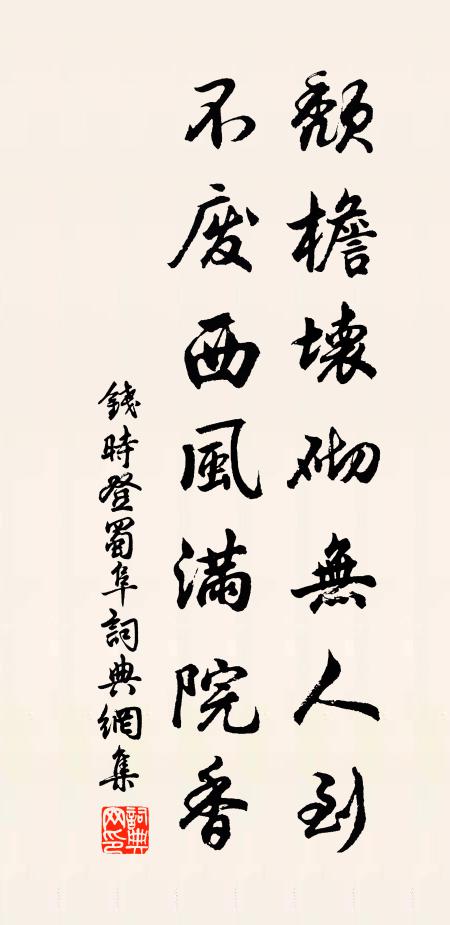 頹檐壞砌無人到
不废西風滿院香
錢時登蜀阜詞典網集
詞典网印